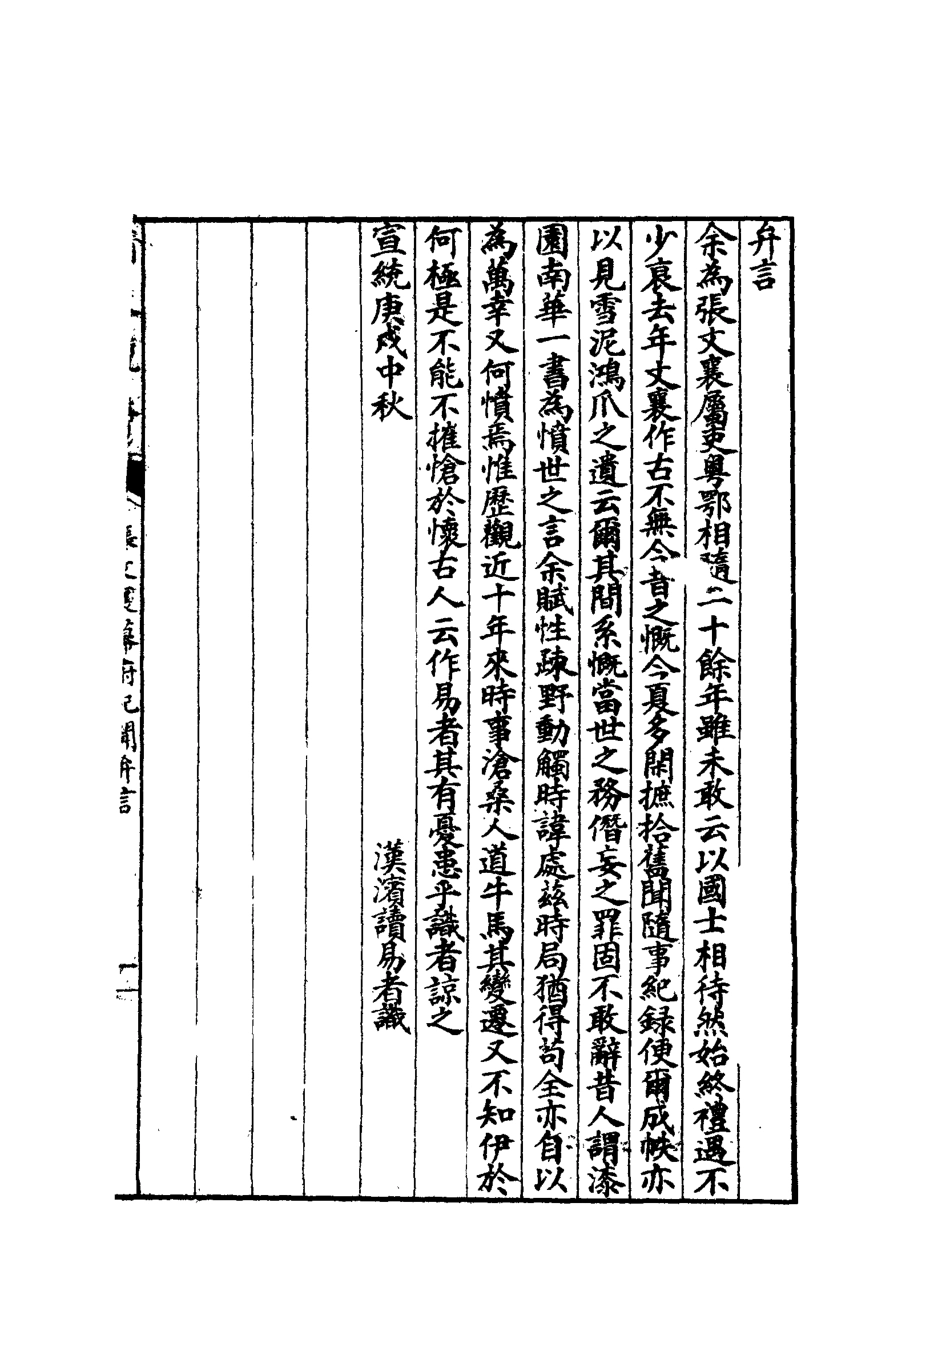 弁言
余為張文襄屬吏粵鄂相隨二十餘年雖未敢云以國士相待然始終禮遇不
少衰去年文襄作古不無今昔之慨今夏多閑摭拾舊聞隨事紀録便爾成帙亦
以見雪泥鴻爪之遺云爾其間系慨當世之務僭妄之罪固不敢辭昔人謂漆
園南華一書為憤世之言余賦性疎野動觸時諱處茲時局猶得苟全亦自以
為萬幸又何憤焉惟歷觀近十年來時事滄桑人道牛馬其變遷又不知伊於
何極是不能不摧愴於懷古人云作易者其有憂患乎識者諒之
宣統庚戌中秋　　　漢濱讀易者識
張文襄幕府紀聞弁言
一